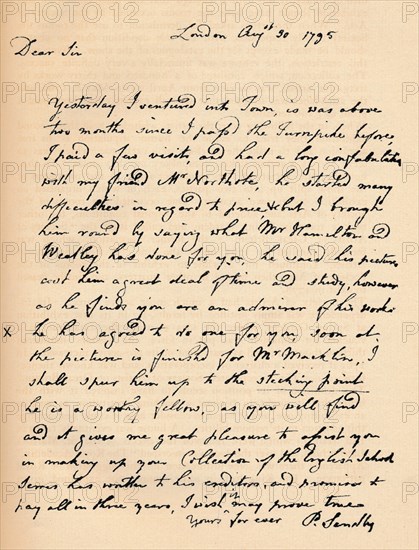 London Augst 30 1795
Dear Sir
Yesterday I ventured into Town, is was above
two months since I pass'd the Turnpike before
I paid a few visits, and had a long confabulation
with my friend Mr Northcote, he started many
difficulties in regard to price, & but I brough
him round by saying what Mr Hamilton and
Weatley has done for you, he said his pictures
cost him a great deal of time and study, however
as he finds you are an admirer of his works
x he has agreed to do one for you, soon at
the picture is finished for Mr Macklin, I
shall spur him up to the sticking point
he is a worthy fellow, as you will find
and it gives me great pleasure to assist you
in making up your Collection of the English School
Serres has written to his creditors, and promises to
pay all in three years, I wish it may prove true
Yours for ever P. Sandby
PHOTO12